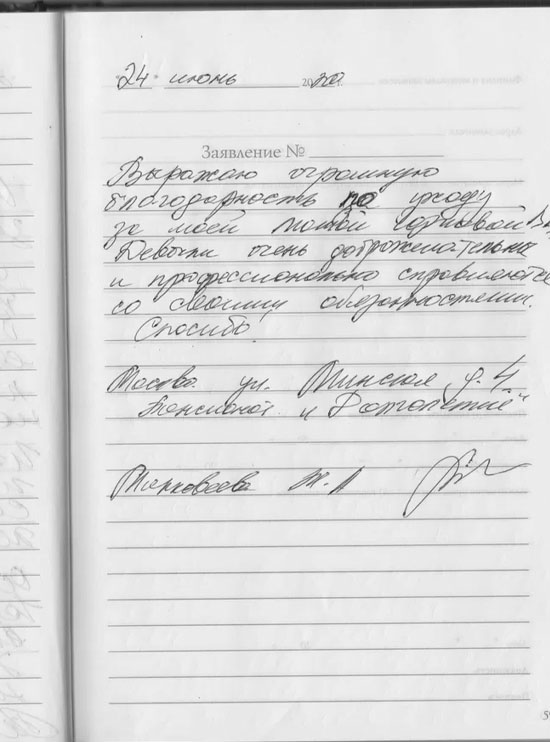 "24" июнь 2020г.
Заявление №
Выражаю огромную
благодарность по уходу
за моей мамой
Девочки очень доброжелательные
и профессионально справляются
со своими обязанностями.
Спасибо.
Москва ул. Минская д. 4
Пансионат "Долголетие"